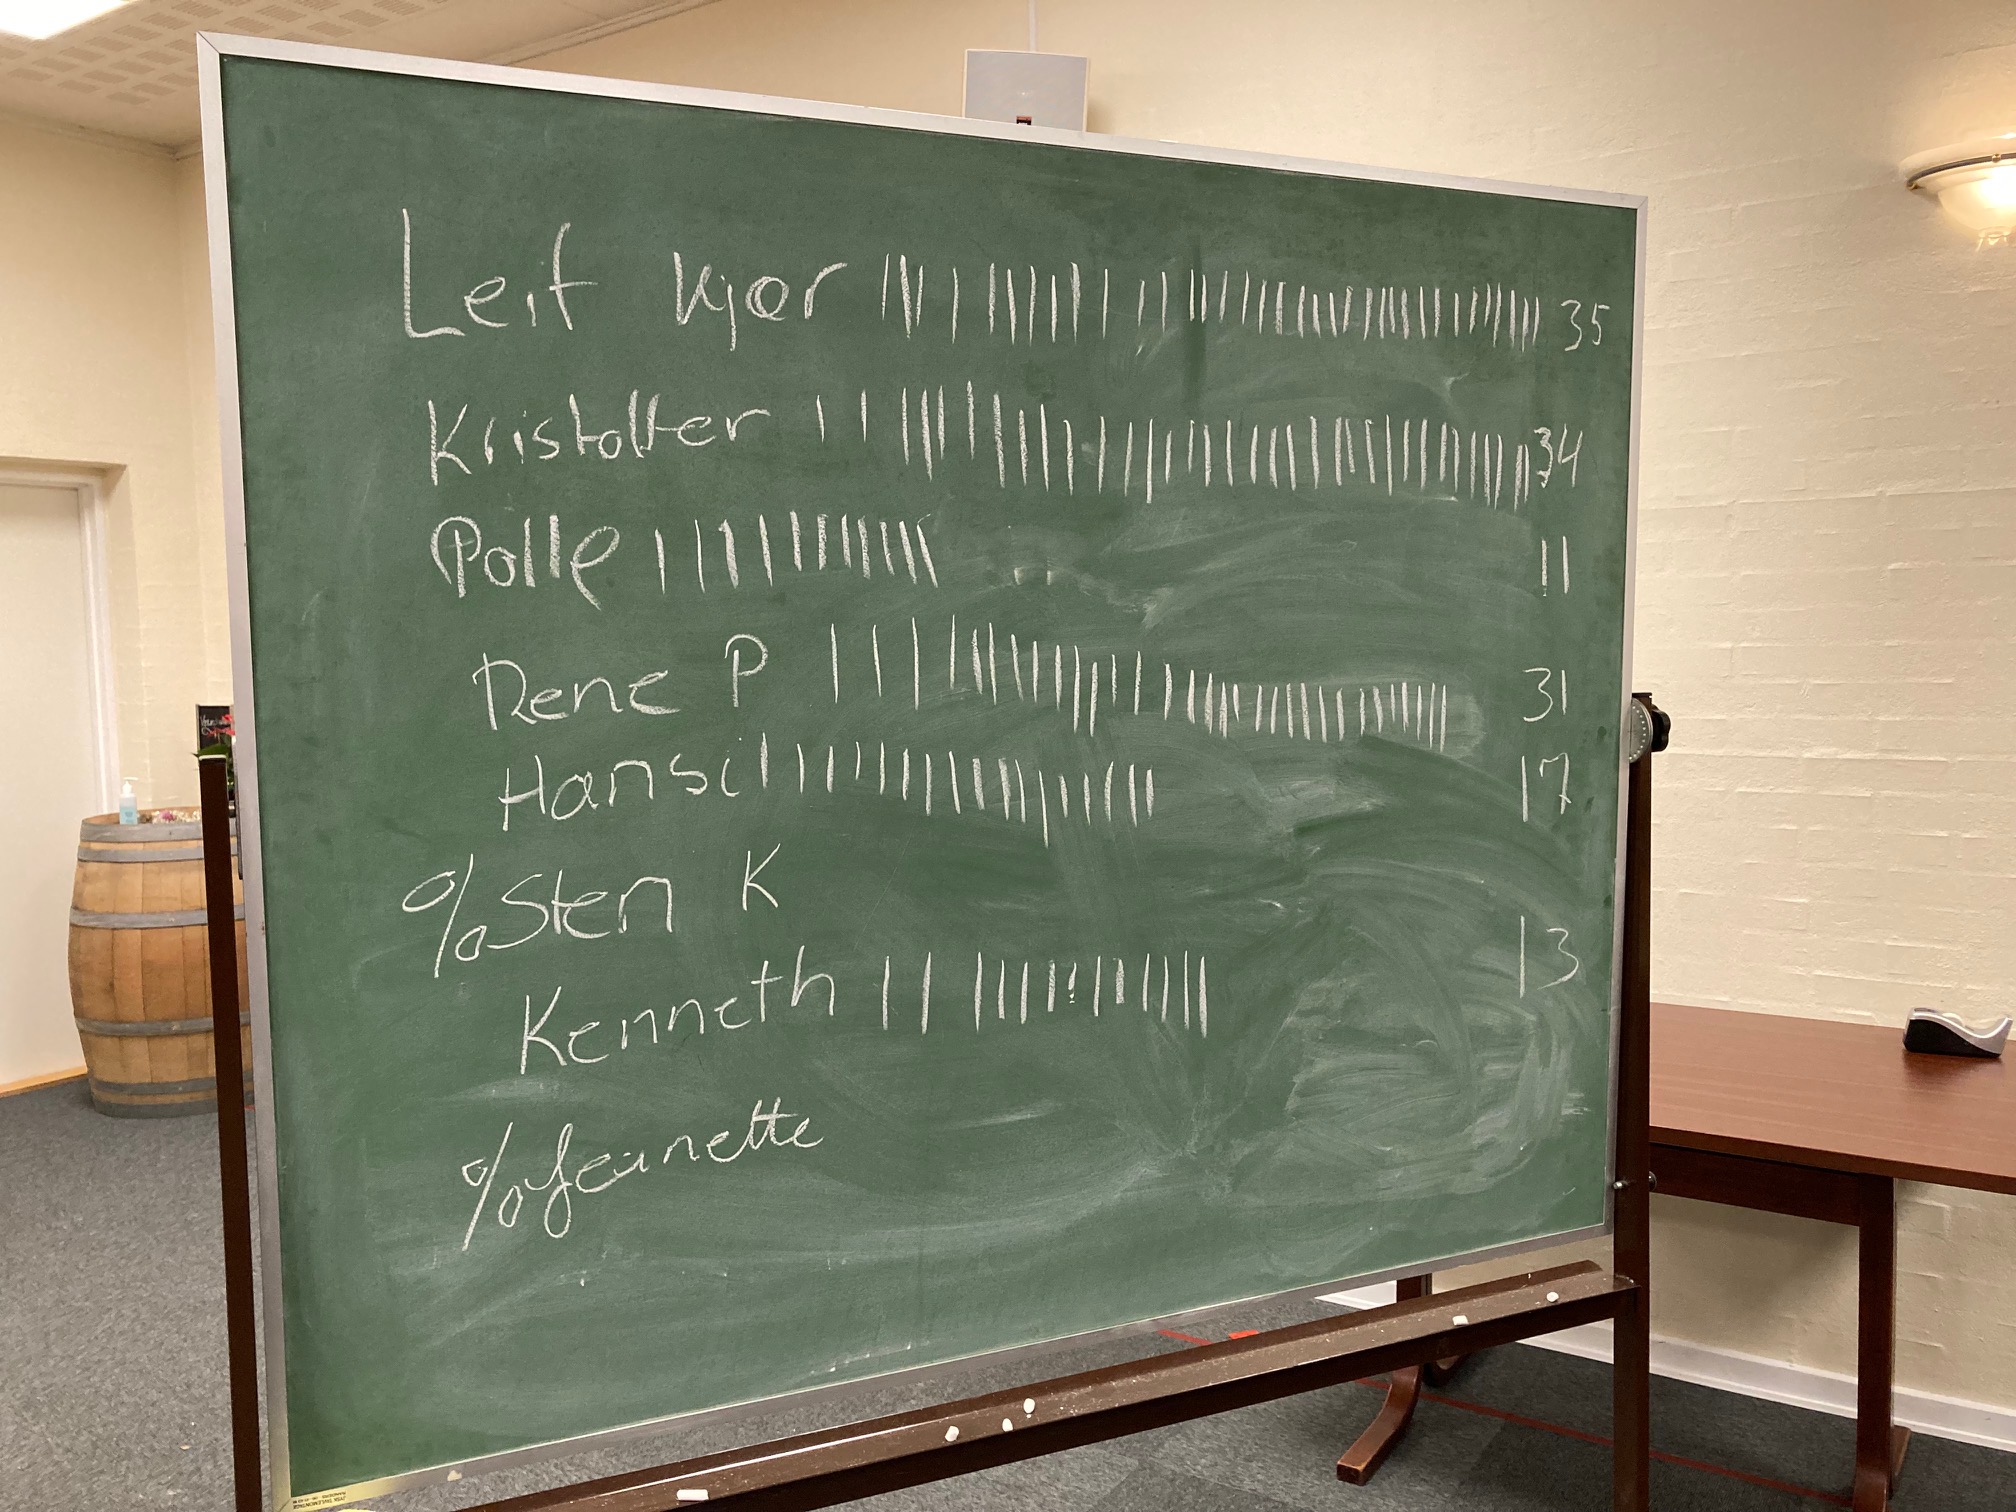 Leif Kjær |||||||||||||||||||||||||||||||||||| 35
Kristoffer |||||||||||||||||||||||||||||||||| 34
Polle ||||||||||| 11
Rene P ||||||||||||||||||||||||||||||| 31
Hansi ||||||||||||||||| 17
% Sten K
Kenneth ||||||||||||| 13
% Jeanette